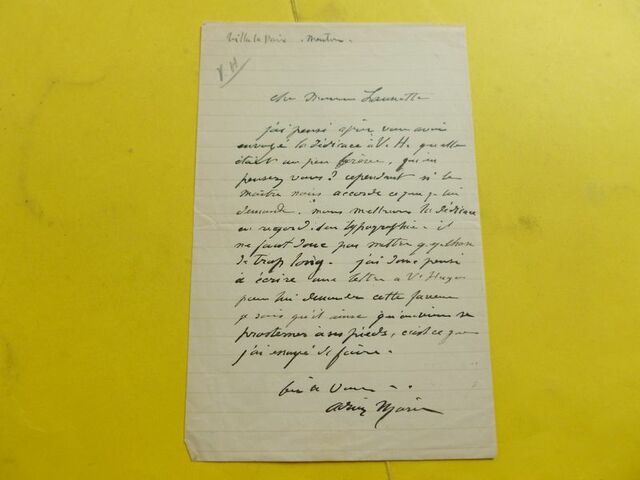 Villa la Paix - Menton -
V. H
Cher Monsieur Launette
j'ai pensé après vous avoir
envoyé la dédicace à V. H. qu'elle
était un peu brève, qu'en
pensez vous? cependant si le
maître nous accorde ce que je lui
demande. nous mettrons la dédicace
en regard. typographie - il
ne faut donc pas mettre q.q. chose
de trop long - j'ai donc pensé
à écrire une lettre à V. Hugo
pour lui demander cette faveur
je sais qu'il aime qu'on vienne se
prosterner à ses pieds, c'est ce que
j'ai essayé de faire -
bien à vous -
Adrien Marie